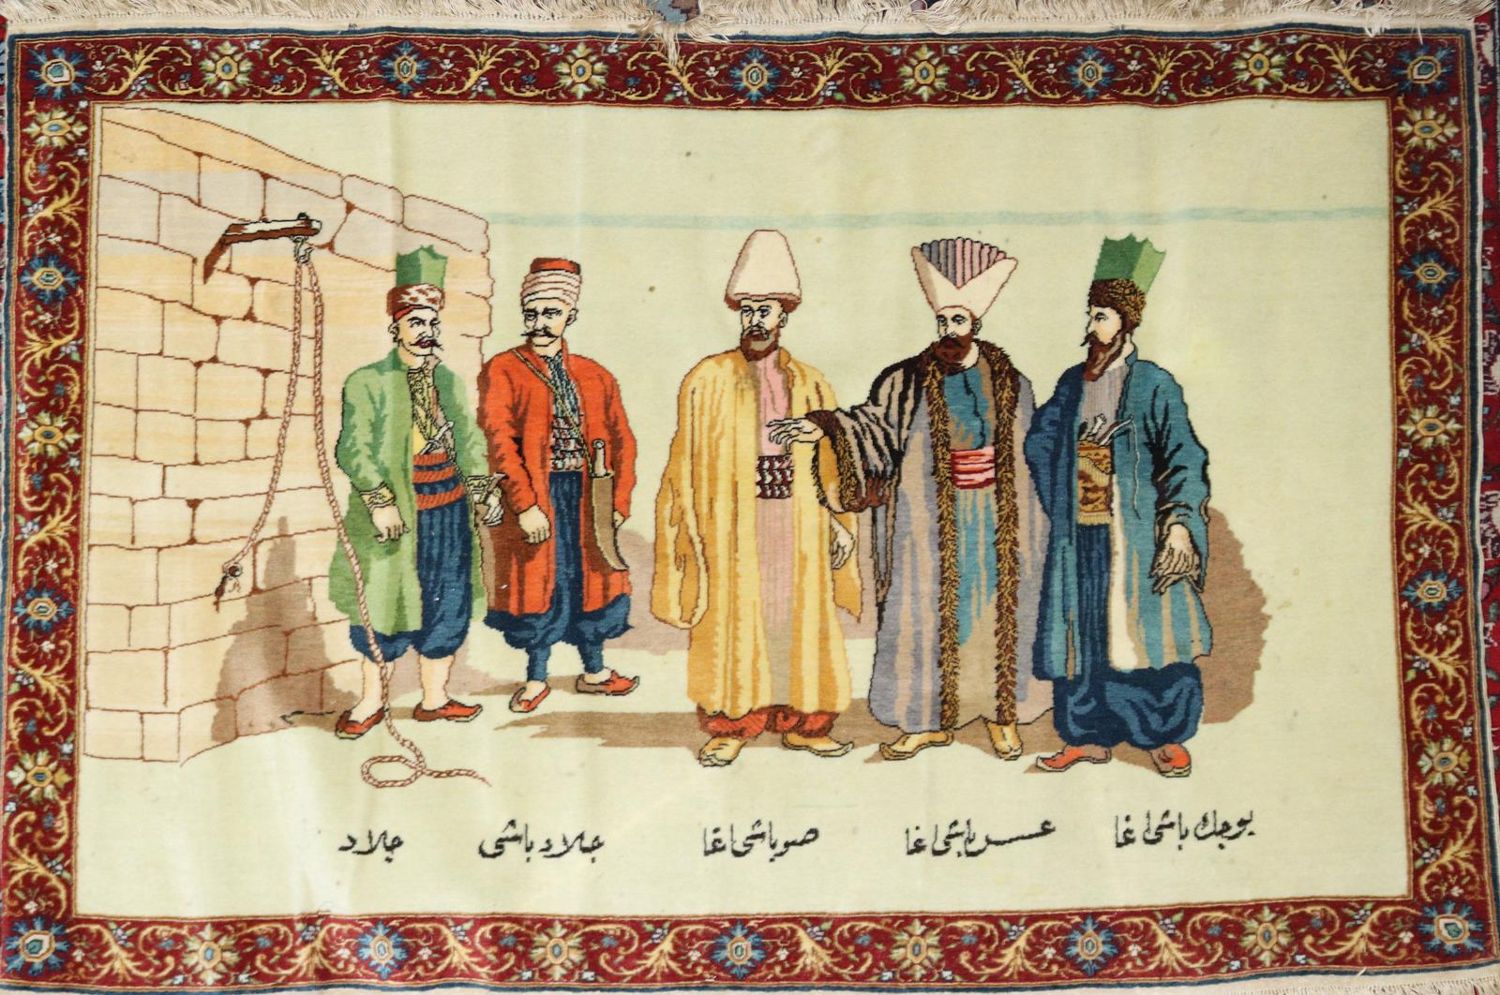 بوجك باشی اغا عسس باشی اغا صوباشی اغا جلاد باشی جلاد